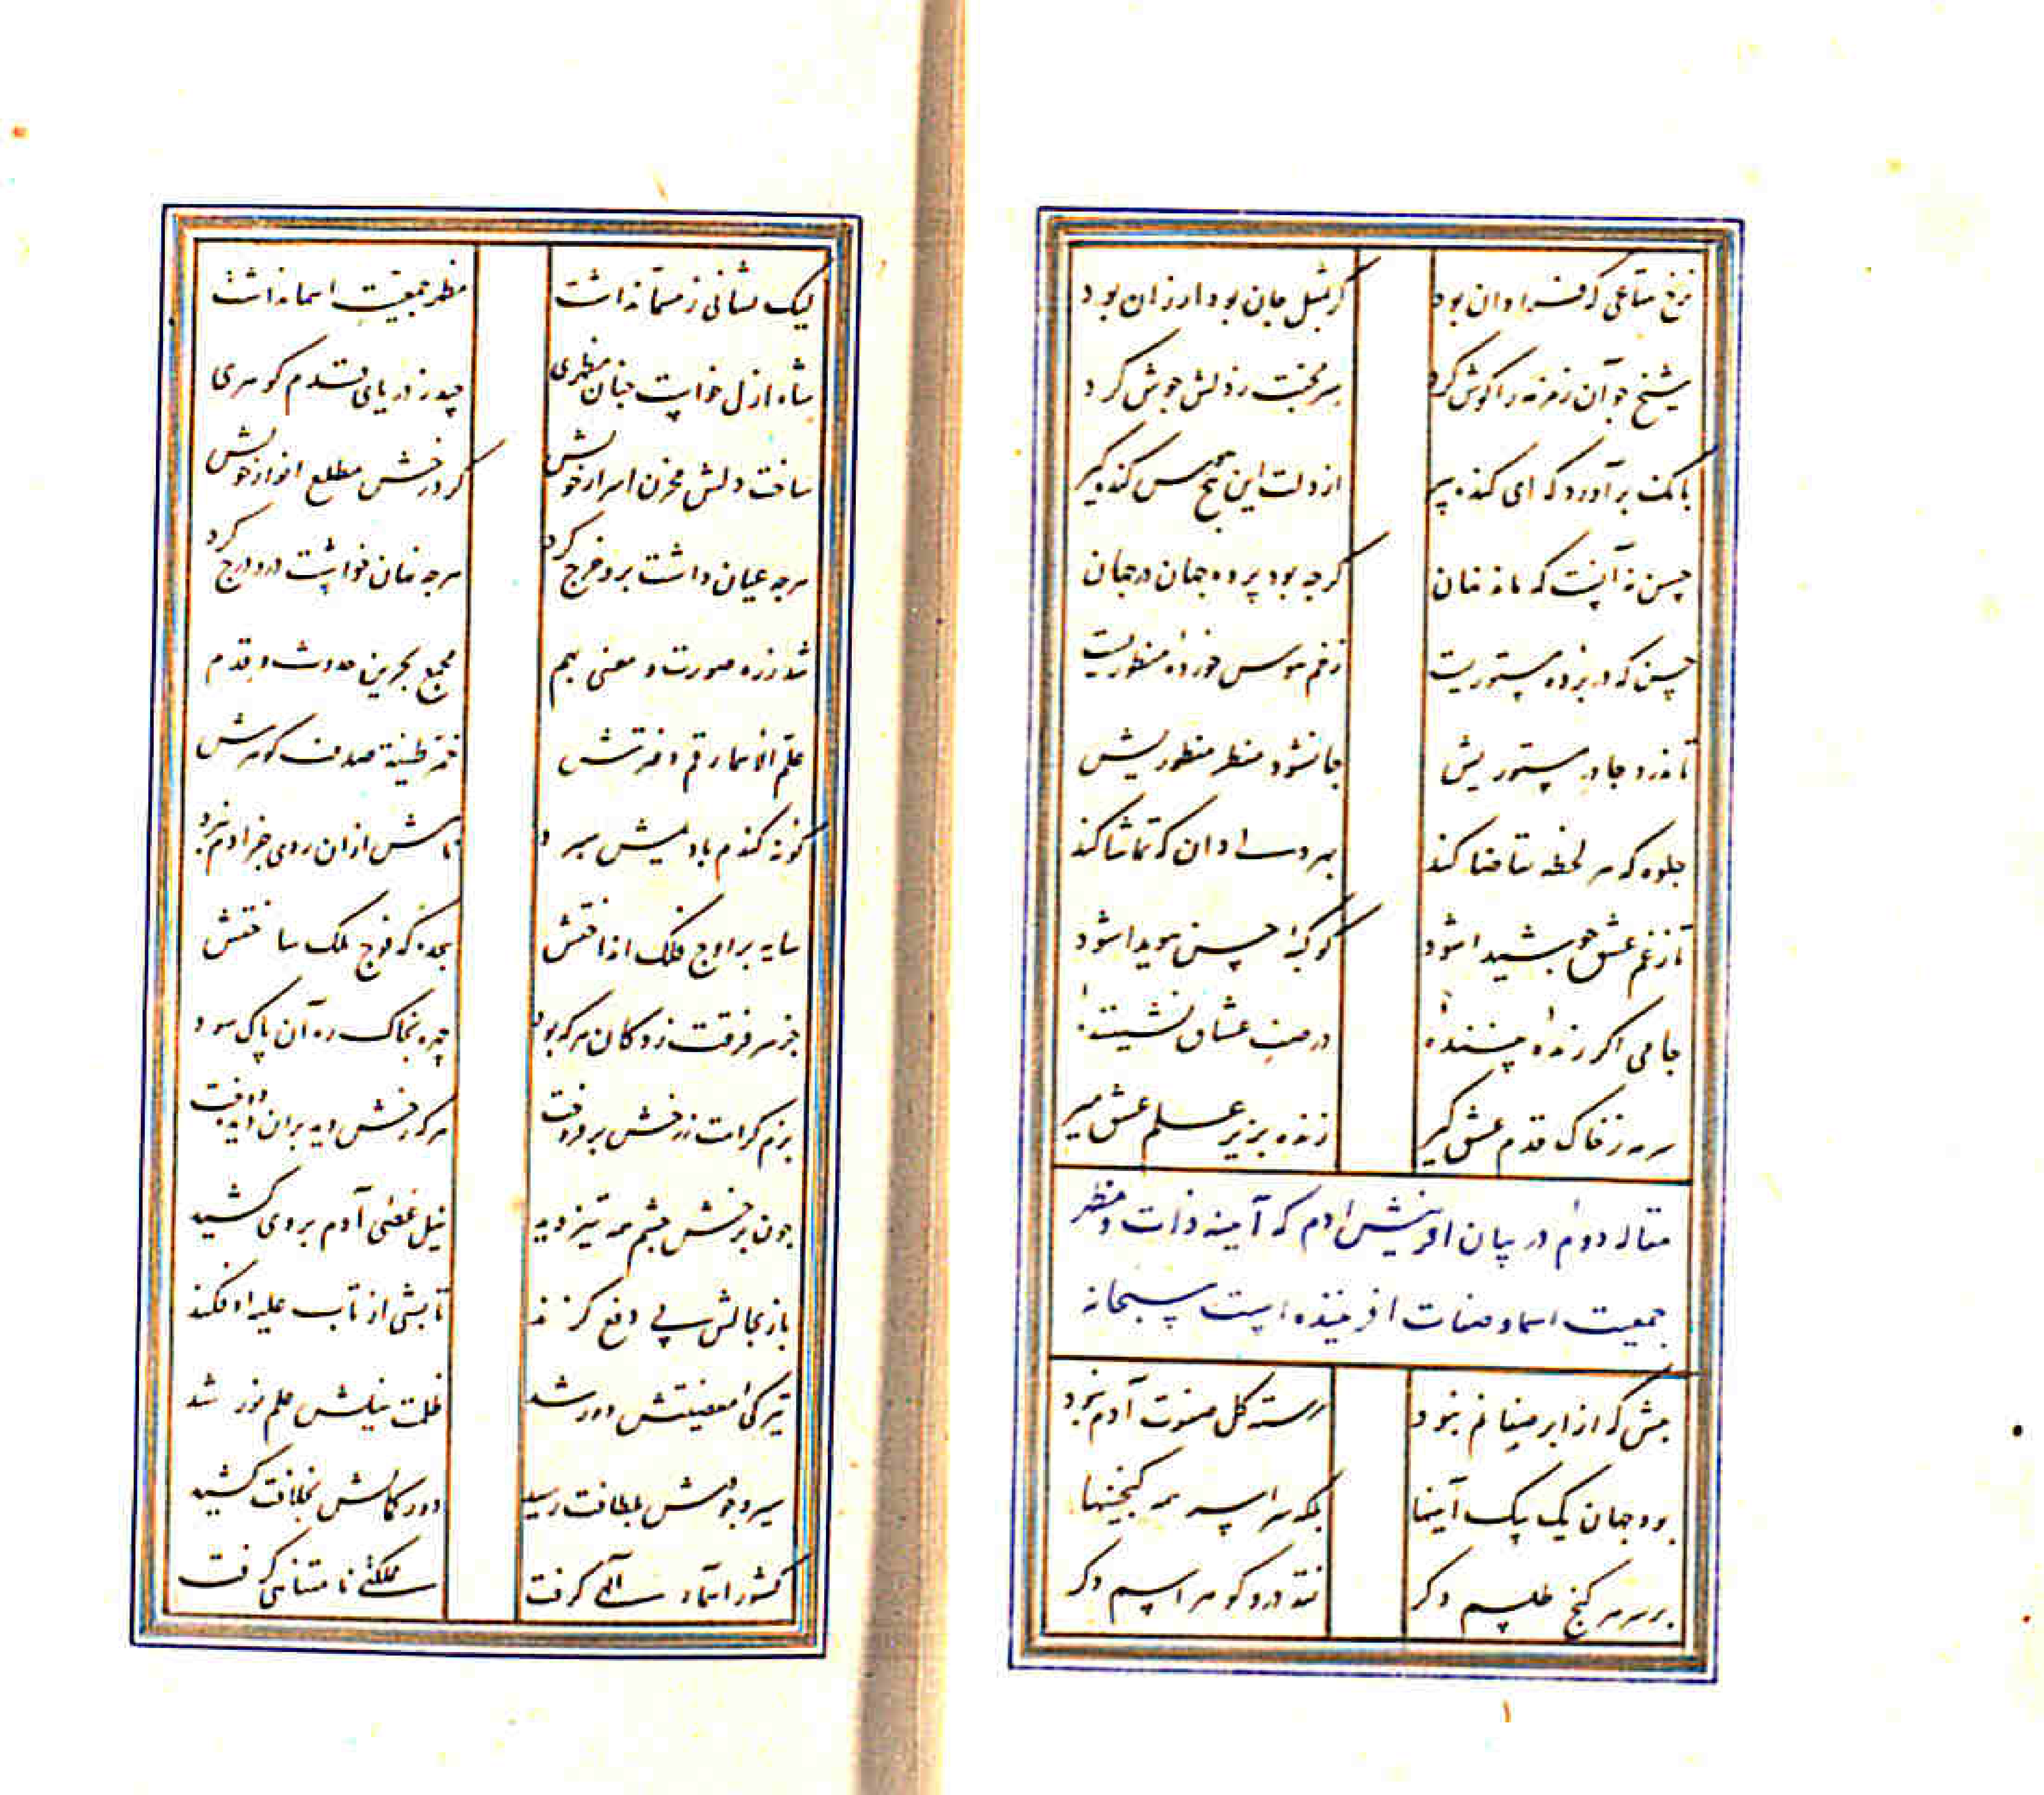 نرخ متاعی که فراوان بود گر بمثل جان بود ارزان بود
شیخ جو آن زمزمه را کوش کرد سر محبت ز دلش جوش کرد
بانک برآورد که ای کنده پیر از دلت این هیچ سخن کنده گیر
حسن نه آنست که ماند نهان کرجه بود پرده جهان در جهان
حسن که در پرده مستوریست زخم هوس خورده منظوریست
تا ندرد جادر مستوریش جا نشود منظر منظوریش
جلوه که هر لحظه تقاضا کند بهر دلی دان که تماشا کند
تا ز غم عشق جو شیدا شود کوکبه حسن هویدا شود
جامی اکر زنده بیننده در صف عشاق نشیننده
سرمه ز خاک قدم عشق گیر زنده بزیر علم عشق میر
مقاله دوم در بیان افرینش ادم که آینه ذات و مظهر
جمعیت اسما و صفات افریننده است سبحانه
پیش که از ابر صفا نم نبود رسته کل صفوت آدم نبود
بود جهان یک بیک آینها بلکه سراسر همه کنجینها
بر سر هر کنج طلسم دکر نقد درو کوهر اسم دکر
لیک نشانی ز مسما نداشت مظهر جمعیت اسما نداشت
شاه ازل خواست جنان مظهری جید ز دریای قدم کوهری
ساخت دلش مخزن اسرار خویش کرد رخش مطلع انوار خویش
هرجه عیان داشت برو خرج کرد هرجه نهان خواست درو درج کرد
شد ز ره صورت و معنی بهم مجمع بحرین حدوث و قدم
علم الاسما رقم دفترش خمر طینة صدف کوهرش
کونه کندم بادیمش سپرد نامش ازان روی جز ادم نبرد
سایه بر اوج فلک انداختش سجده که فوج ملک ساختش
جز سر فرقت زدکان هر که بود جهره بخاک ره آن پاک سود
بزم کرامت ز رخش برفروخت هر که رخش دید بران دیده دوخت
جون برخش جشم مه تیز دید نیل عصی آدم بر وی کشید
باز بجالش پی دفع کزند تابشی از تاب علیه افکند
تیرکی معصیتش دور شد ظلمت نیلش علم نور شد
سیر وجودش بلطافت رسید دور کمالش بخلافت کشید
کشور اسماء آلهی کرفت مملکتی نامتناهی کرفت
۱